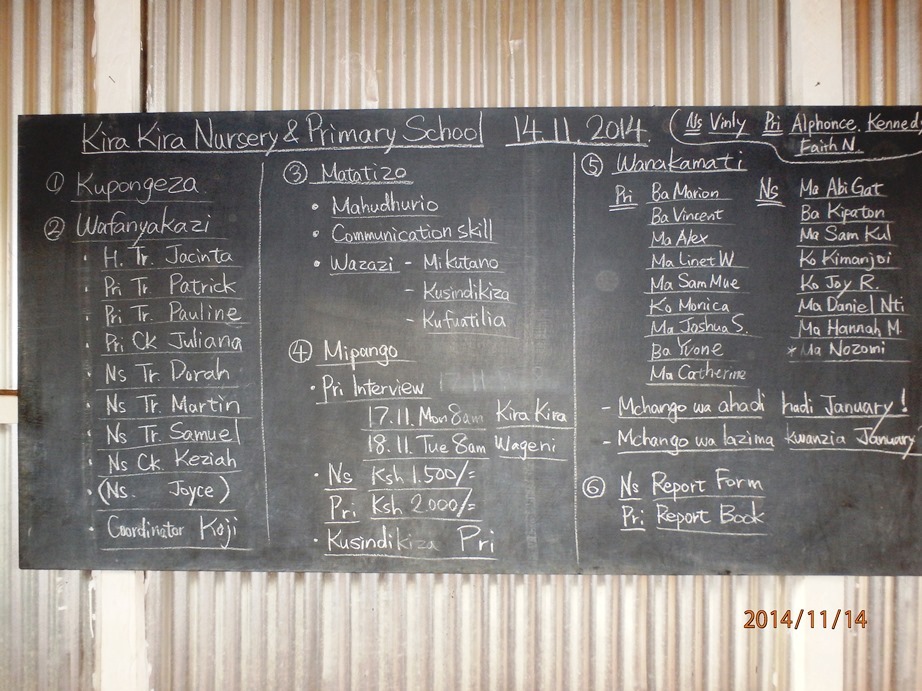 Kira Kira Nursery & Primary School 14.11.2014. (Ns Vinly Pri Alphonce. Kennedy
Faith N.
① Kupongeza
② Wafanyakazi
· H. Tr. Jacinta
· Pri Tr. Patrick
· Pri Tr. Pauline
· Pri Ck Juliana
· Ns Tr. Dorah
· Ns Tr. Martin
· Ns Tr. Samuel
· Ns Ck. Keziah
· (Ns. Joyce)
· Coordinator Koji
③ Matatizo
· Mahudhurio
· Communication skill
· Wazazi - Mikutano
- Kusindikiza
- Kufuatilia
④ Mipango
· Pri Interview
17.11. Mon 8am Kira Kira
18.11. Tue 8am Wageni
· Ns Ksh 1.500/=
Pri Ksh 2.000/=
· Kusindikiza Pri
⑤ Wanakamati
Pri Ba Marion
Ba Vincent
Ma Alex
Ma Linet W
Ma Sam Mue
Ko Monica
Ma Joshua S.
Ba Yvone
Ma Catherine
Ns Ma Abi Gat
Ba Kipaton
Ma Sam Kul
Ko Kimanjoi
Ko Joy R.
Ma Daniel Nti
Ma Hannah M.
* Ma Nozomi
- Mchango wa ahadi hadi January!
- Mchango wa lazima kwanzia January
⑥ Ns Report Form
Pri Report Book
2014/11/14